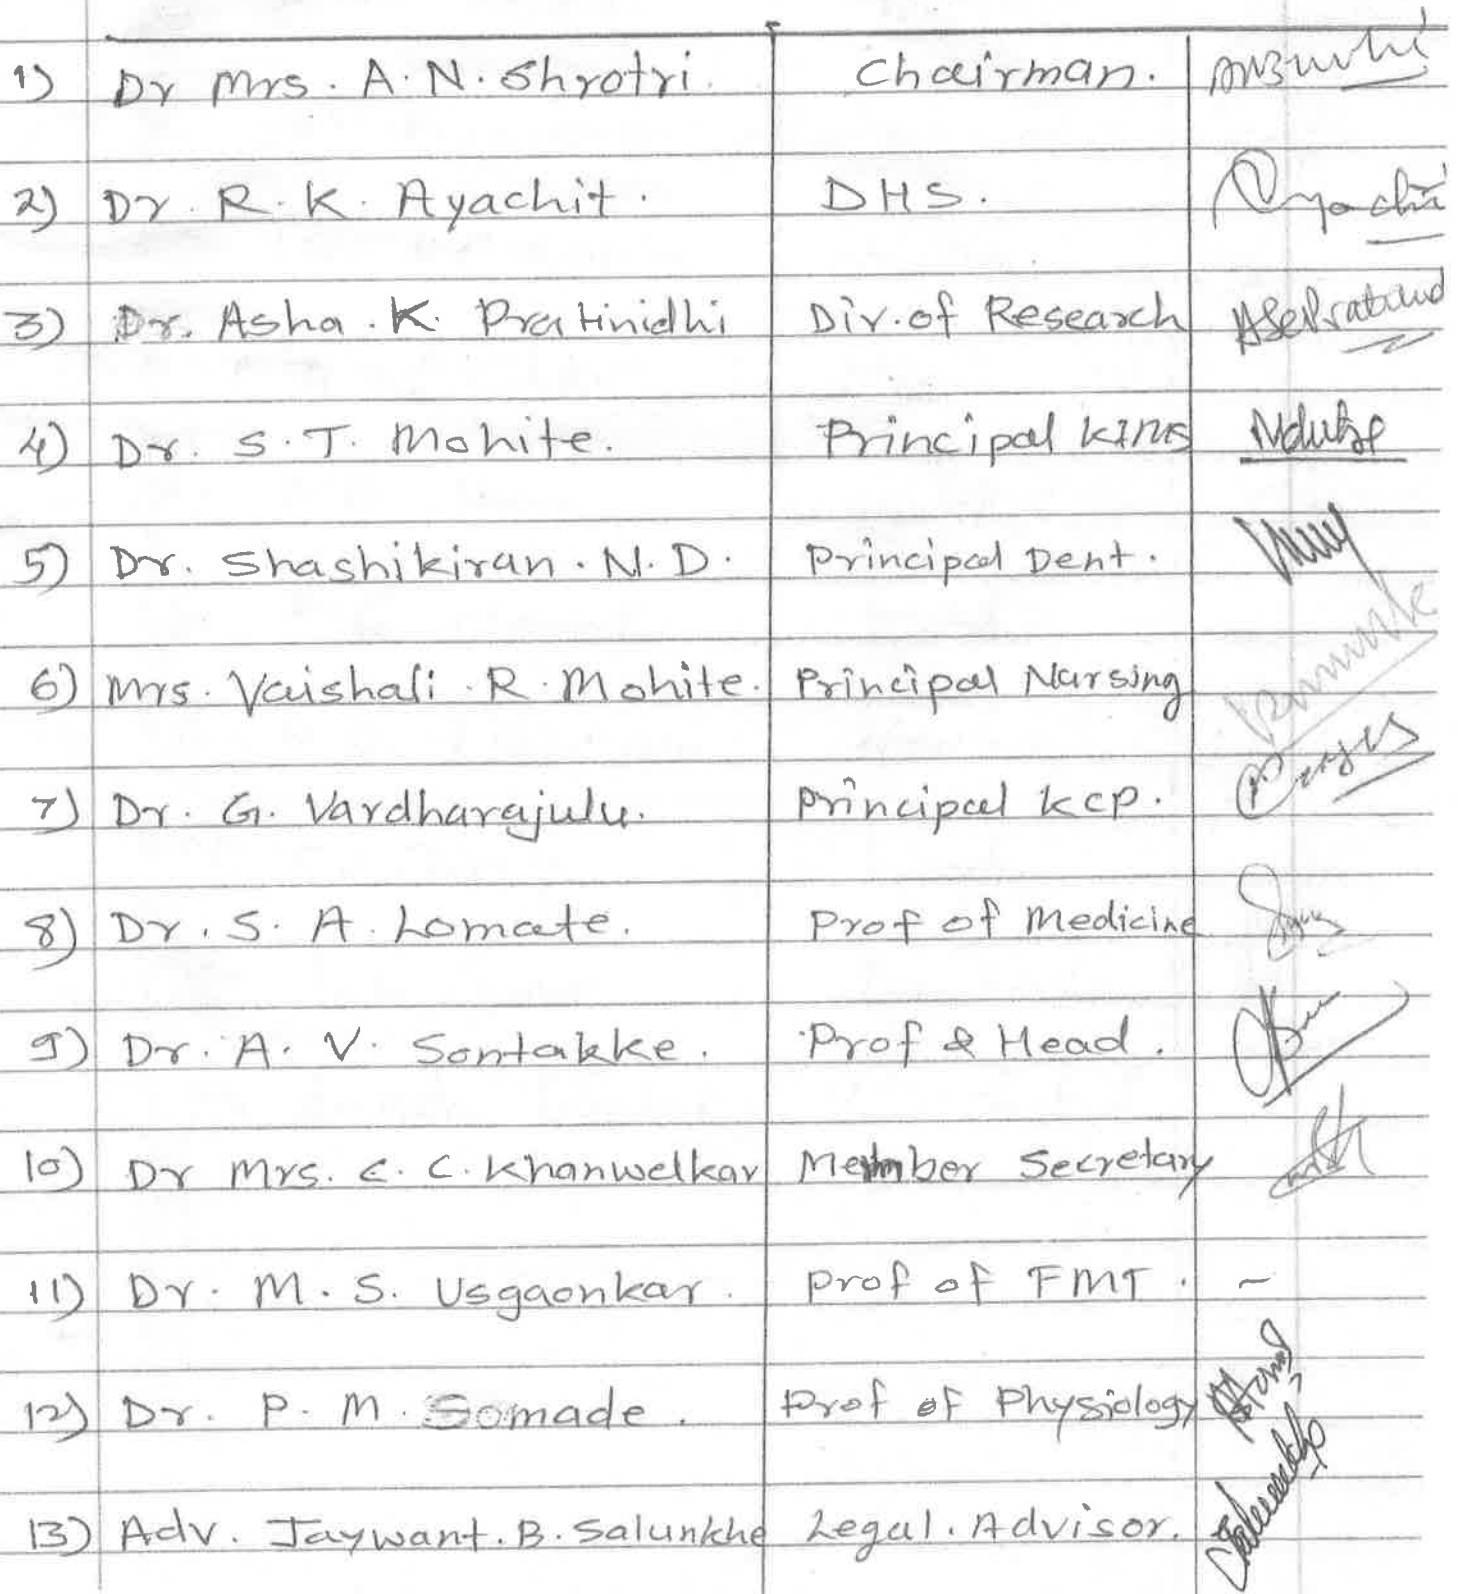 1) Dr Mrs. A. N. Shrotri. Chairman.
2) Dr. R. K. Ayachit. DHS.
3) Dr. Asha. K. Pratinidhi Dir. of Research
4) Dr. S. T. Mohite. Principal KIMS
5) Dr. Shashikiran. N. D. Principal Dent.
6) Mrs. Vaishali. R. Mohite. Principal Nursing
7) Dr. G. Vardharajulu. Principal KCP.
8) Dr. S. A. Lomate. Prof of Medicine
9) Dr. A. V. Sontakke. Prof & Head.
10) Dr Mrs. C. C. Khanwelkar Member Secretary
11) Dr. M. S. Usgaonkar. Prof of FMT. -
12) Dr. P. M. Somade. Prof of Physiology
13) Adv. Jaywant. B. Salunkhe Legal. Advisor.